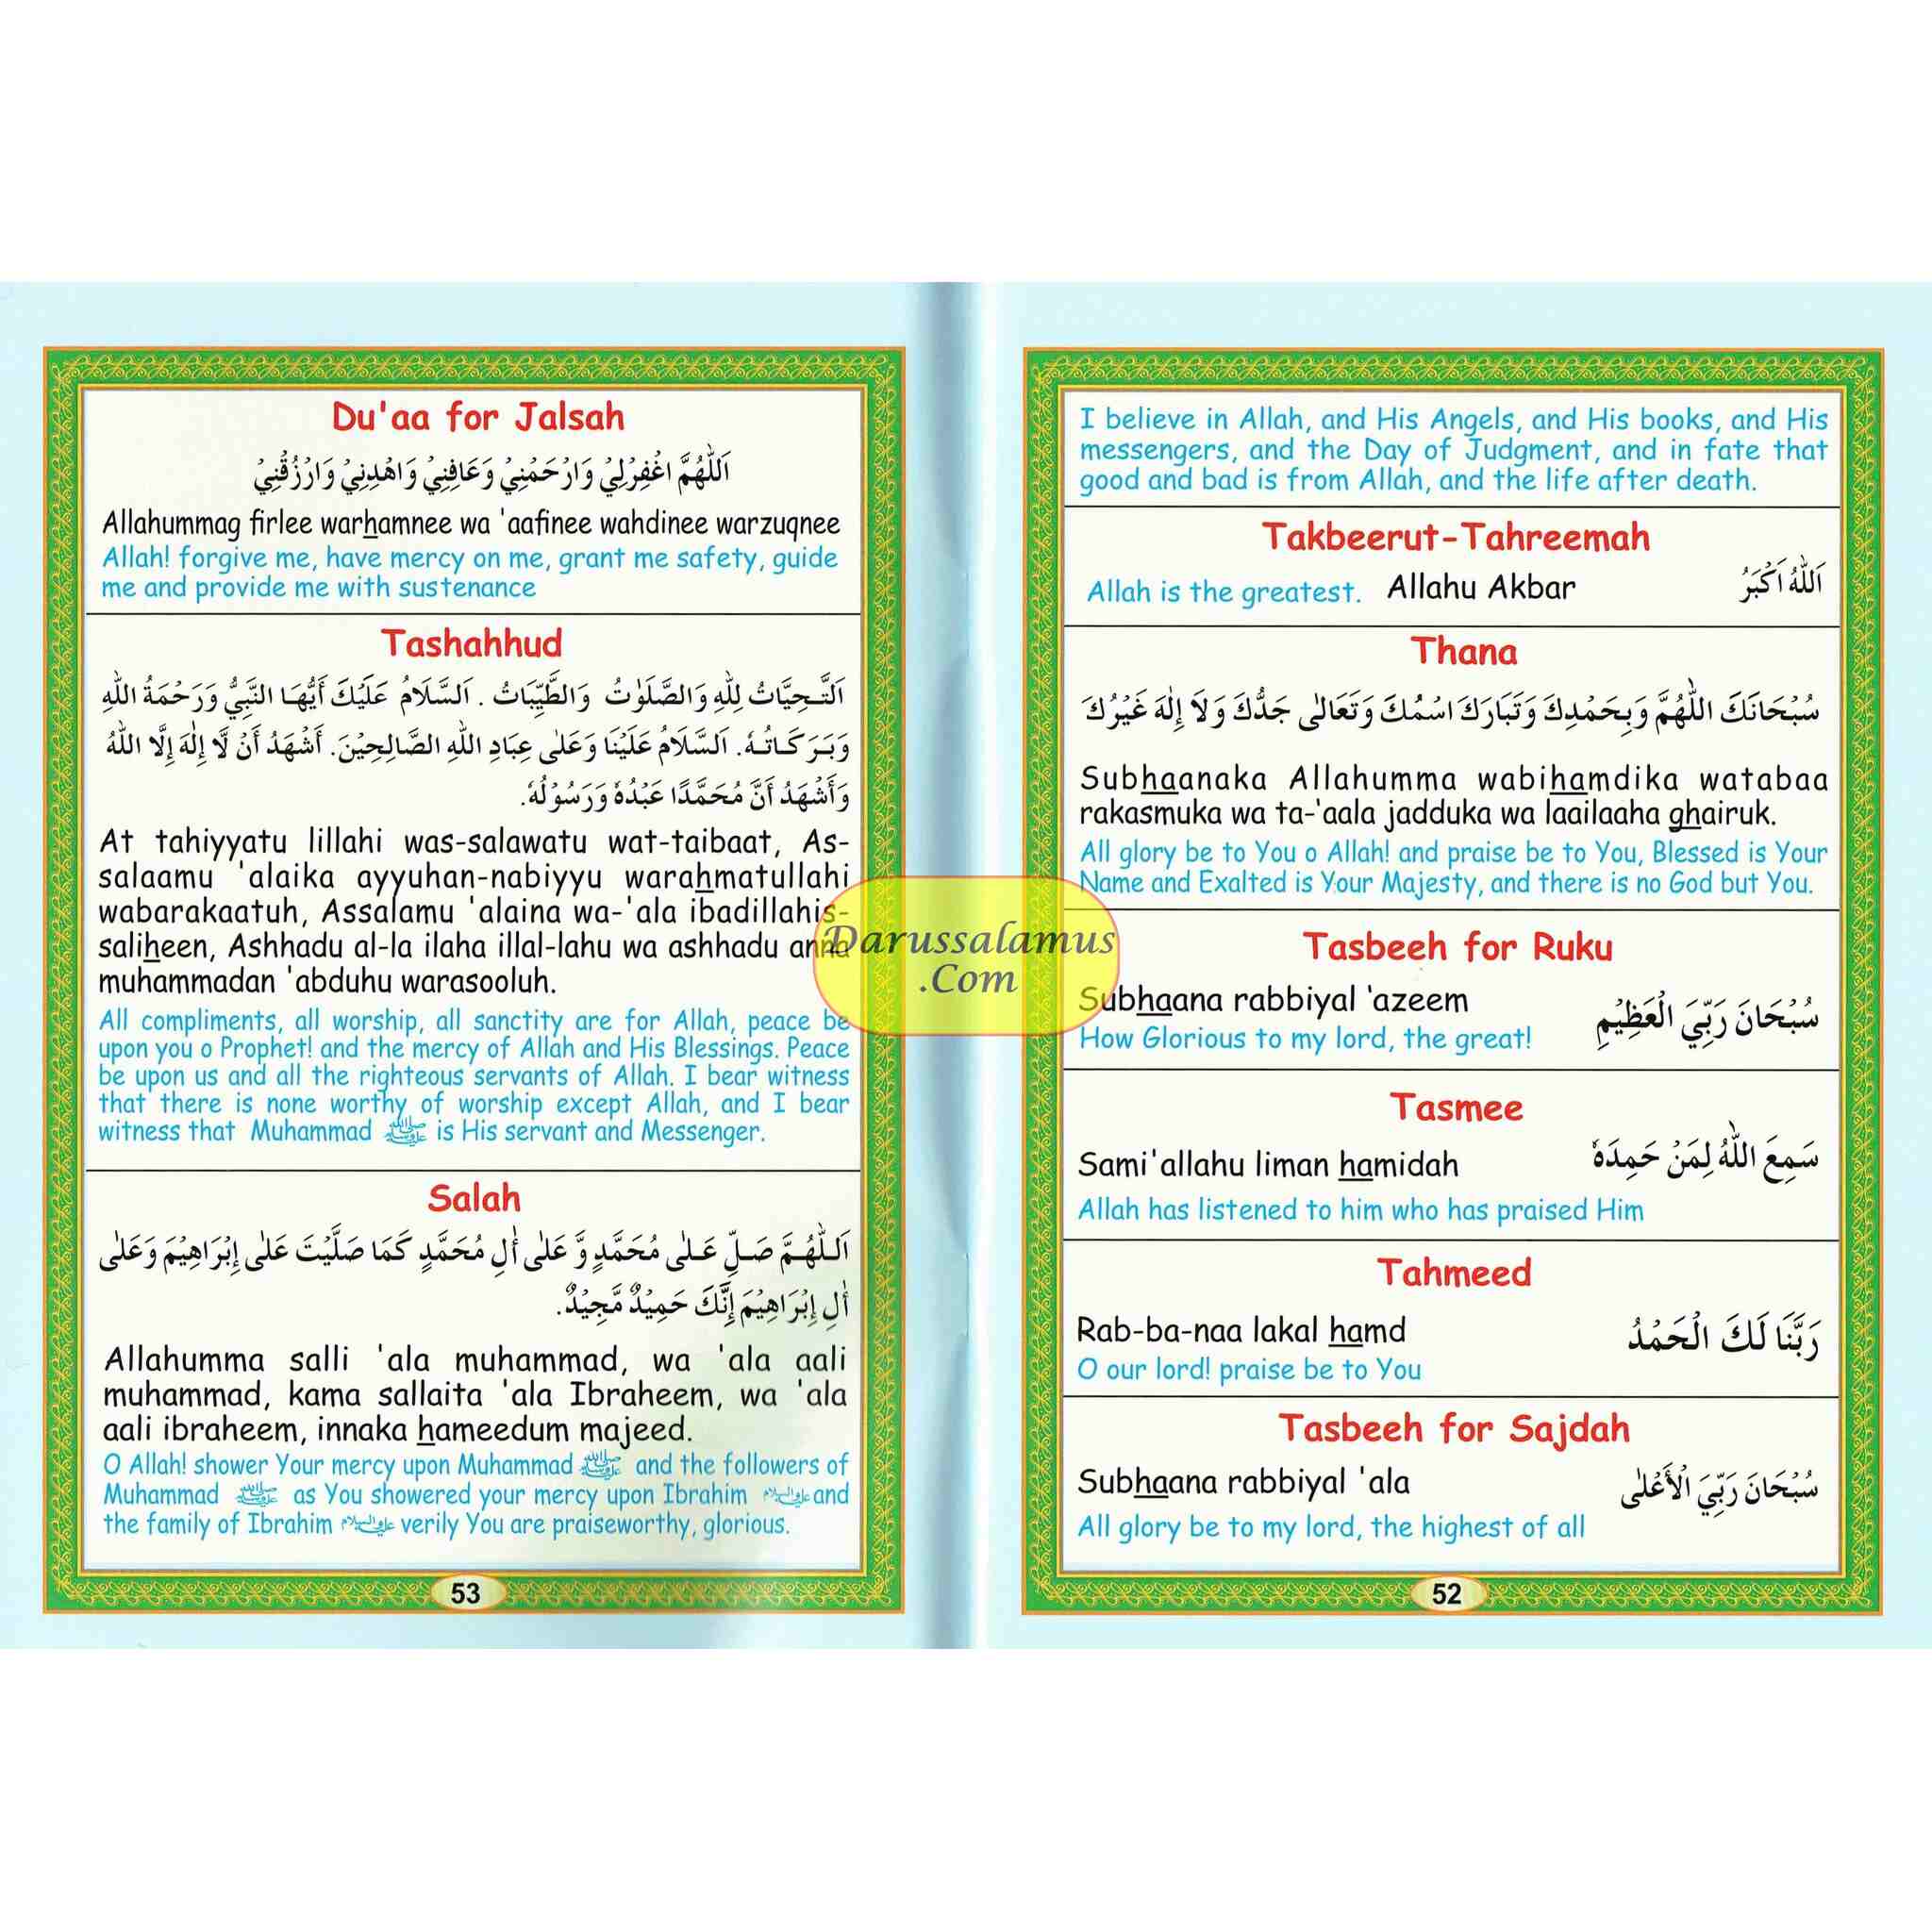 I believe in Allah, and His Angels, and His books, and His
messengers, and the Day of Judgment, and in fate that
good and bad is from Allah, and the life after death.
Takbeerut-Tahreemah
Allah is the greatest. Allahu Akbar اَللّٰهُ اَكْبَرُ
Thana
سُبْحَانَكَ اللّٰهُمَّ وَبِحَمْدِكَ وَتَبَارَكَ اسْمُكَ وَتَعَالٰى جَدُّكَ وَلَا إِلٰهَ غَيْرُكَ
Subhaanaka Allahumma wabihamdika watabaa
rakasmuka wa ta-'aala jadduka wa laailaaha ghairuk.
All glory be to You o Allah! and praise be to You, Blessed is Your
Name and Exalted is Your Majesty, and there is no God but You.
Tasbeeh for Ruku
Subhaana rabbiyal 'azeem سُبْحَانَ رَبِّيَ الْعَظِيْمِ
How Glorious to my lord, the great!
Tasmee
Sami'allahu liman hamidah سَمِعَ اللّٰهُ لِمَنْ حَمِدَهٗ
Allah has listened to him who has praised Him
Tahmeed
Rab-ba-naa lakal hamd رَبَّنَا لَكَ الْحَمْدُ
O our lord! praise be to You
Tasbeeh for Sajdah
Subhaana rabbiyal 'ala سُبْحَانَ رَبِّيَ الْأَعْلٰى
All glory be to my lord, the highest of all
52
Du'aa for Jalsah
اَللّٰهُمَّ اغْفِرْلِيْ وَارْحَمْنِيْ وَعَافِنِيْ وَاهْدِنِيْ وَارْزُقْنِيْ
Allahummag firlee warhamnee wa 'aafinee wahdinee warzuqnee
Allah! forgive me, have mercy on me, grant me safety, guide
me and provide me with sustenance
Tashahhud
اَلتَّحِيَّاتُ لِلّٰهِ وَالصَّلَوٰتُ وَالطَّيِّبَاتُ . اَلسَّلَامُ عَلَيْكَ أَيُّهَا النَّبِيُّ وَرَحْمَةُ اللّٰهِ
وَبَرَكَاتُهٗ. اَلسَّلَامُ عَلَيْنَا وَعَلٰى عِبَادِ اللّٰهِ الصَّالِحِيْنَ. أَشْهَدُ أَنْ لَّا إِلٰهَ إِلَّا اللّٰهُ
وَأَشْهَدُ أَنَّ مُحَمَّدًا عَبْدُهٗ وَرَسُوْلُهٗ.
At tahiyyatu lillahi was-salawatu wat-taibaat, As-
salaamu 'alaika ayyuhan-nabiyyu warahmatullahi
wabarakaatuh, Assalamu 'alaina wa-'ala ibadillahis-
saliheen, Ashhadu al-la ilaha illal-lahu wa ashhadu anna
muhammadan 'abduhu warasooluh.
All compliments, all worship, all sanctity are for Allah, peace be
upon you o Prophet! and the mercy of Allah and His Blessings. Peace
be upon us and all the righteous servants of Allah. I bear witness
that there is none worthy of worship except Allah, and I bear
witness that Muhammad ﷺ is His servant and Messenger.
Salah
اَللّٰهُمَّ صَلِّ عَلٰى مُحَمَّدٍ وَّ عَلٰى أٰلِ مُحَمَّدٍ كَمَا صَلَّيْتَ عَلٰى إِبْرَاهِيْمَ وَعَلٰى
أٰلِ إِبْرَاهِيْمَ إِنَّكَ حَمِيْدٌ مَّجِيْدٌ.
Allahumma salli 'ala muhammad, wa 'ala aali
muhammad, kama sallaita 'ala Ibraheem, wa 'ala
aali ibraheem, innaka hameedum majeed.
O Allah! shower Your mercy upon Muhammad ﷺ and the followers of
Muhammad ﷺ as You showered your mercy upon Ibrahim عليه السلام and
the family of Ibrahim عليه السلام verily You are praiseworthy, glorious.
53
Darussalamus
.Com